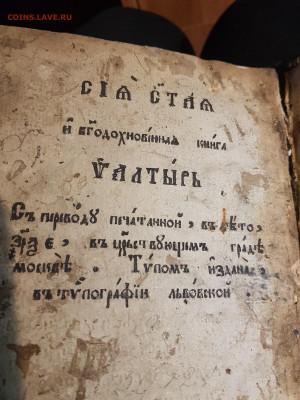 COINS.LAVE.RU
СІѦ҄ СТ҃АѦ
И҆ БГ҃ОДОХНОВЕ́ННАѦ КНИГА
ѰАЛТЫ́РЬ
Съ переводу печа́таннои, въ лѣто
҂зрѯ҃е, въ црⷭ҇твующимъ гра́дѣ
москвѣ. Тѵ́помъ и҆здана̀
въ тѵпогра́фїи льво́вской